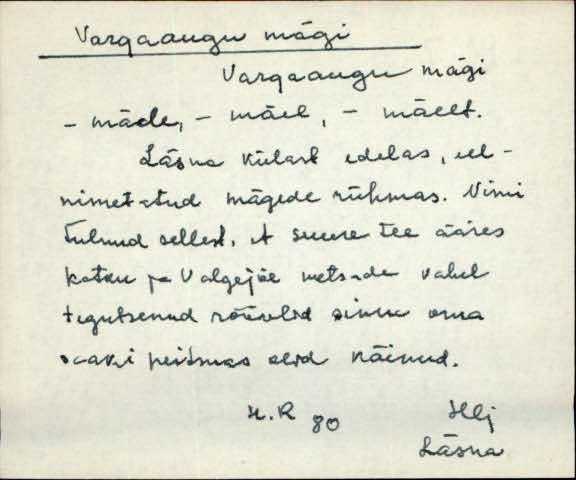 Vargaaugu mägi
Vargaaugu mägi
- mäele, - mäel, - mäelt.
Läsna külast edelas, eel-
nimetatud mägede rühmas. Nimi
tulnud sellest, et suure tee ääres
Kotku ja Valgejõe metsade vahel
tegutsenud röövlid siinu oma
saaki peitmas olid käinud.
H. R 80 Hlj
Läsna